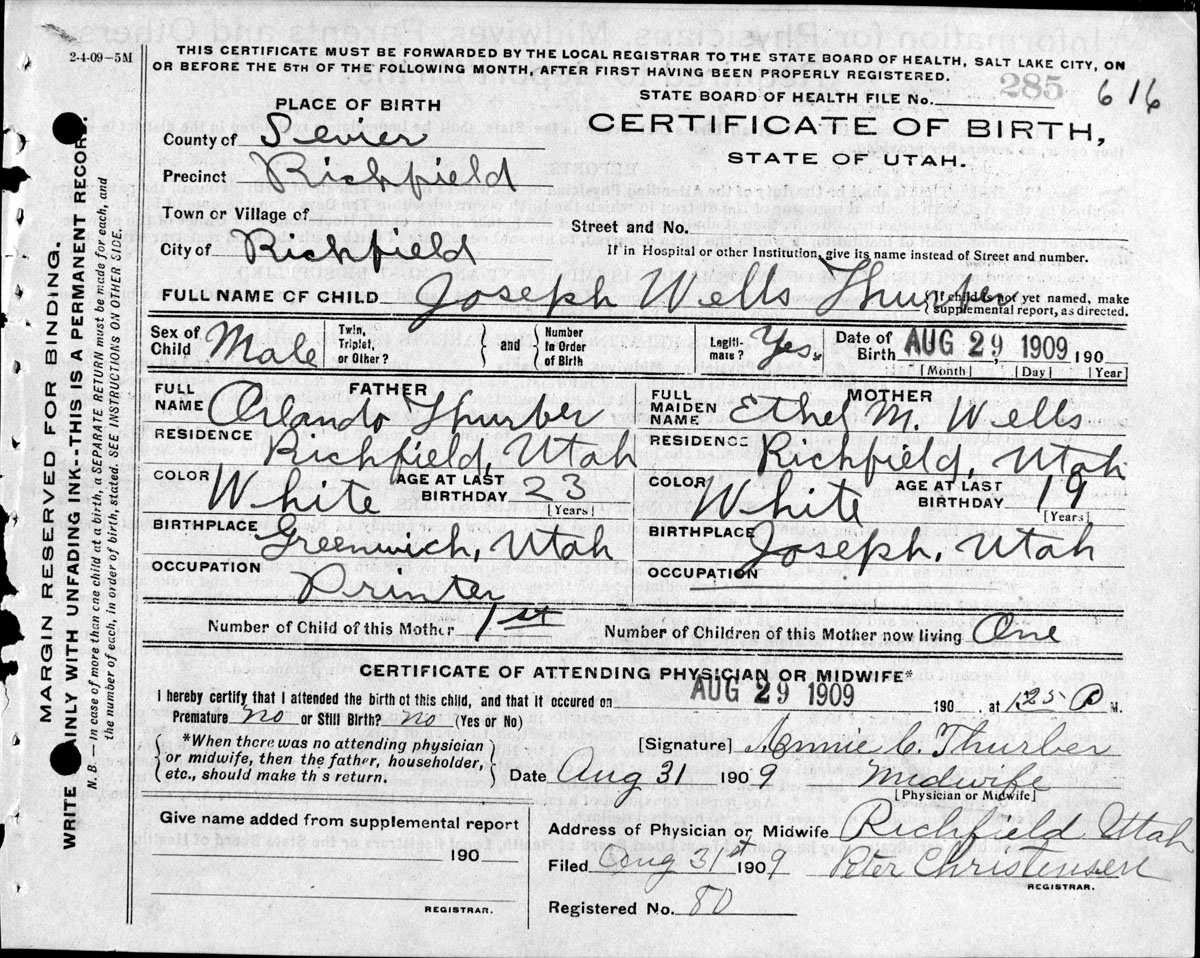 2-4-09-5M
THIS CERTIFICATE MUST BE FORWARDED BY THE LOCAL REGISTRAR TO THE STATE BOARD OF HEALTH, SALT LAKE CITY, ON
OR BEFORE THE 5TH OF THE FOLLOWING MONTH, AFTER FIRST HAVING BEEN PROPERLY REGISTERED.
STATE BOARD OF HEALTH FILE No. 285 616
PLACE OF BIRTH
CERTIFICATE OF BIRTH,
STATE OF UTAH.
County of Sevier
Precinct Richfield
Town or Village of
Street and No.
City of Richfield
If in Hospital or other Institution, give its name instead of Street and number.
FULL NAME OF CHILD Joseph Wells Thurber
If child is not yet named, make
supplemental report, as directed.
Sex of Child Male Twin, Triplet, or Other? and Number in Order of Birth Legitimate? Yes. Date of Birth AUG 29 1909 190
[Month] [Day] [Year]
FATHER
FULL NAME Orlando Thurber
RESIDENCE Richfield, Utah
COLOR White AGE AT LAST BIRTHDAY 23
[Years]
BIRTHPLACE Greenwich, Utah
OCCUPATION Printer
MOTHER
FULL MAIDEN NAME Ethel M. Wells
RESIDENCE Richfield, Utah
COLOR White AGE AT LAST BIRTHDAY 19
[Years]
BIRTHPLACE Joseph, Utah
OCCUPATION
Number of Child of this Mother 1st Number of Children of this Mother now living One
CERTIFICATE OF ATTENDING PHYSICIAN OR MIDWIFE*
I hereby certify that I attended the birth of this child, and that it occured on AUG 29 1909 190 , at 125 P M.
Premature no or Still Birth? no (Yes or No)
*When there was no attending physician
or midwife, then the father, householder,
etc., should make this return.
[Signature] Annie C. Thurber
Date Aug 31 1909 Midwife
[Physician or Midwife]
Give name added from supplemental report
190
REGISTRAR.
Address of Physician or Midwife Richfield Utah
Filed Aug 31st 1909 Peter Christensen
REGISTRAR.
Registered No. 80
MARGIN RESERVED FOR BINDING.
WRITE PLAINLY WITH UNFADING INK--THIS IS A PERMANENT RECORD.
N. B.—In case of more than one child at a birth, a SEPARATE RETURN must be made for each, and
the number of each, in order of birth, stated. SEE INSTRUCTIONS ON OTHER SIDE.